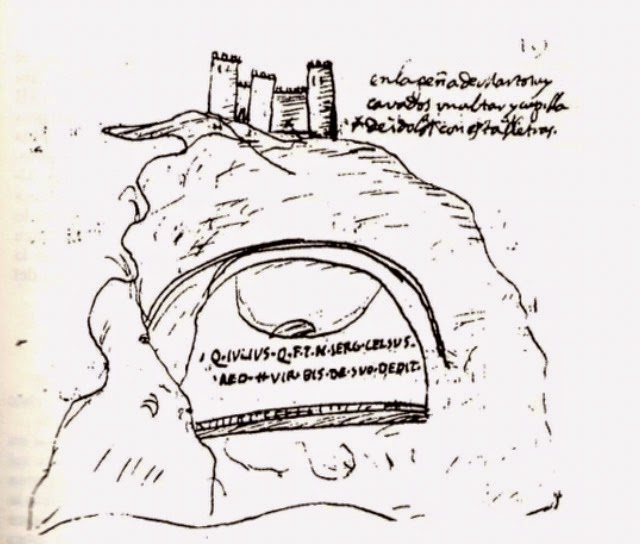 en la peña de Martos ay
cavados un altar y capilla
de idolos con estas letras.
Q·IVLIVS·Q·F·T·N·SERG·CELSVS·
AED·II·VIR·BIS·DE·SVO·DEDIT·